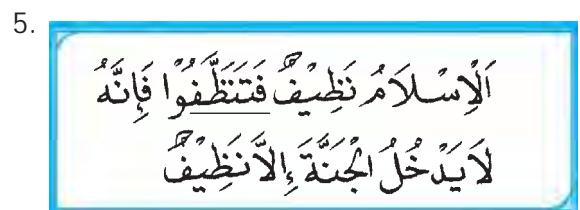 5.
اَلْاِسْلَامُ نَظِيْفٌ فَتَنَظَّفُوْا فَاِنَّهُ
لَايَدْخُلُ الْجَنَّةَ اِلَّانَظِيْفٌ